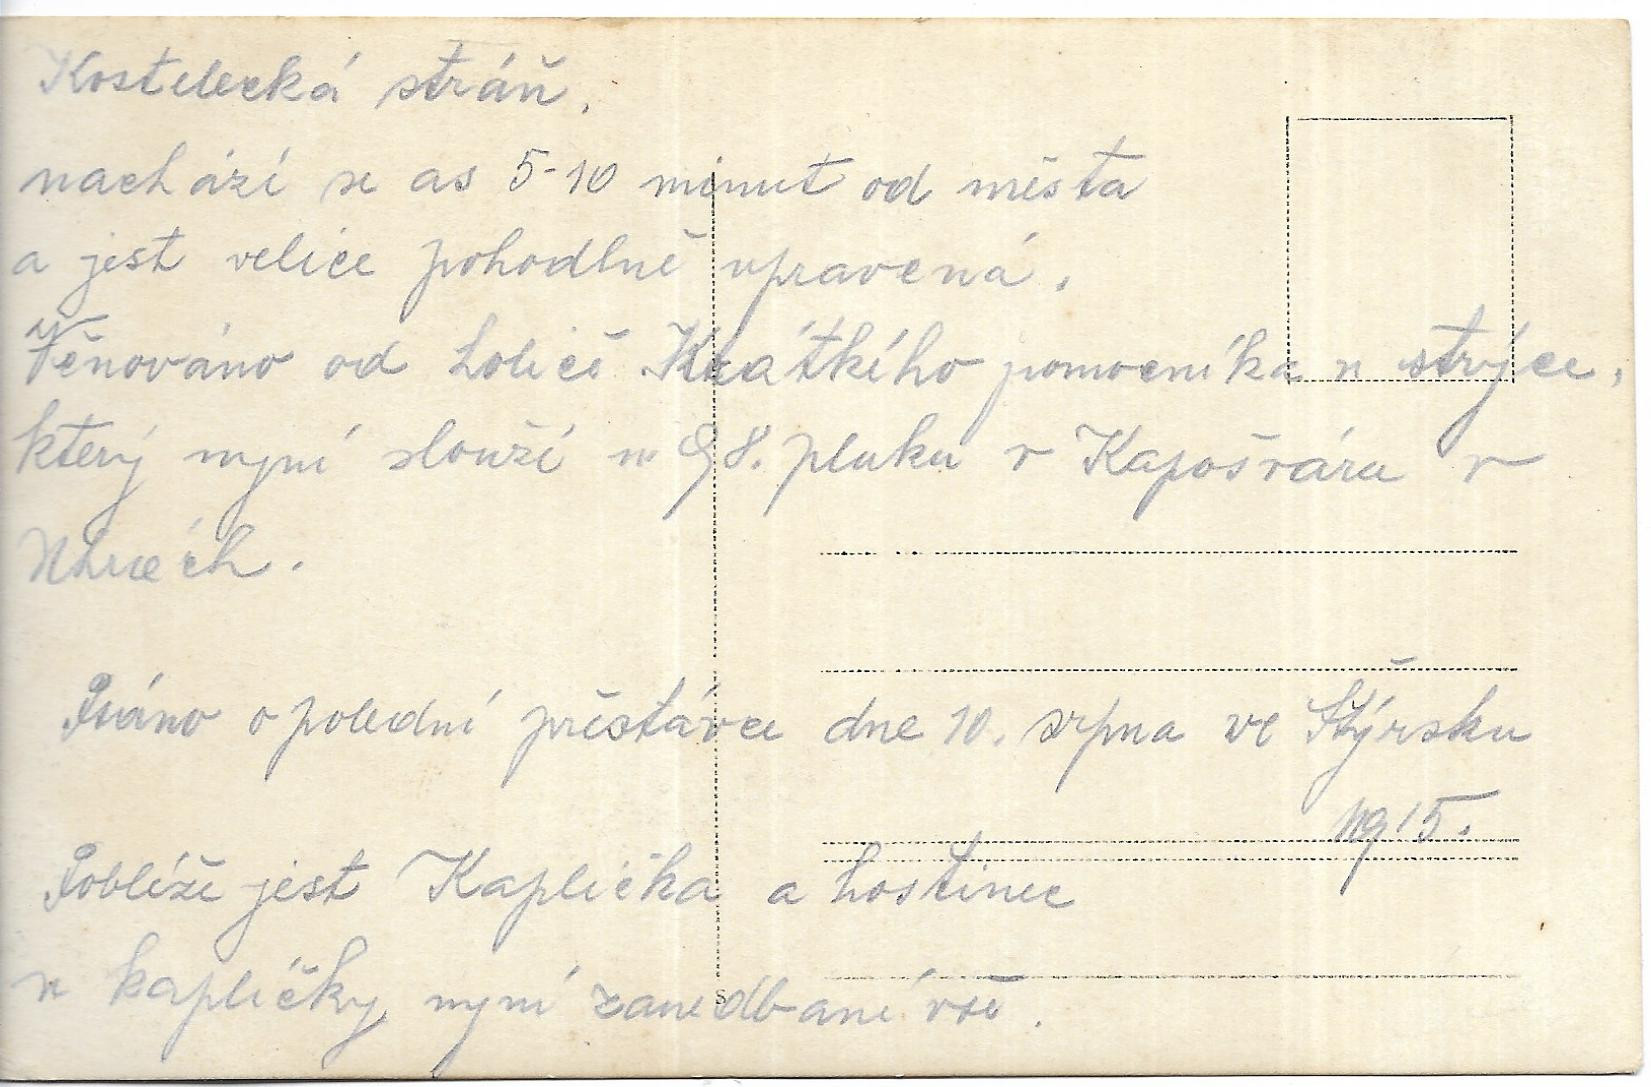 Kostelecká stráň.
nachází se as 5-10 minut od města
a jest velice pohodlně upravená.
Věnováno od holiče Krátkého pomocníka u strýce,
který nyní slouží u 98. pluku v Kapošváru v
Uhrách.
Psáno o polední přestávce dne 10. srpna ve Štýrsku
1915.
Poblíže jest Kaplička a hostinec
u kapličky nyní zanedbané vše.
S